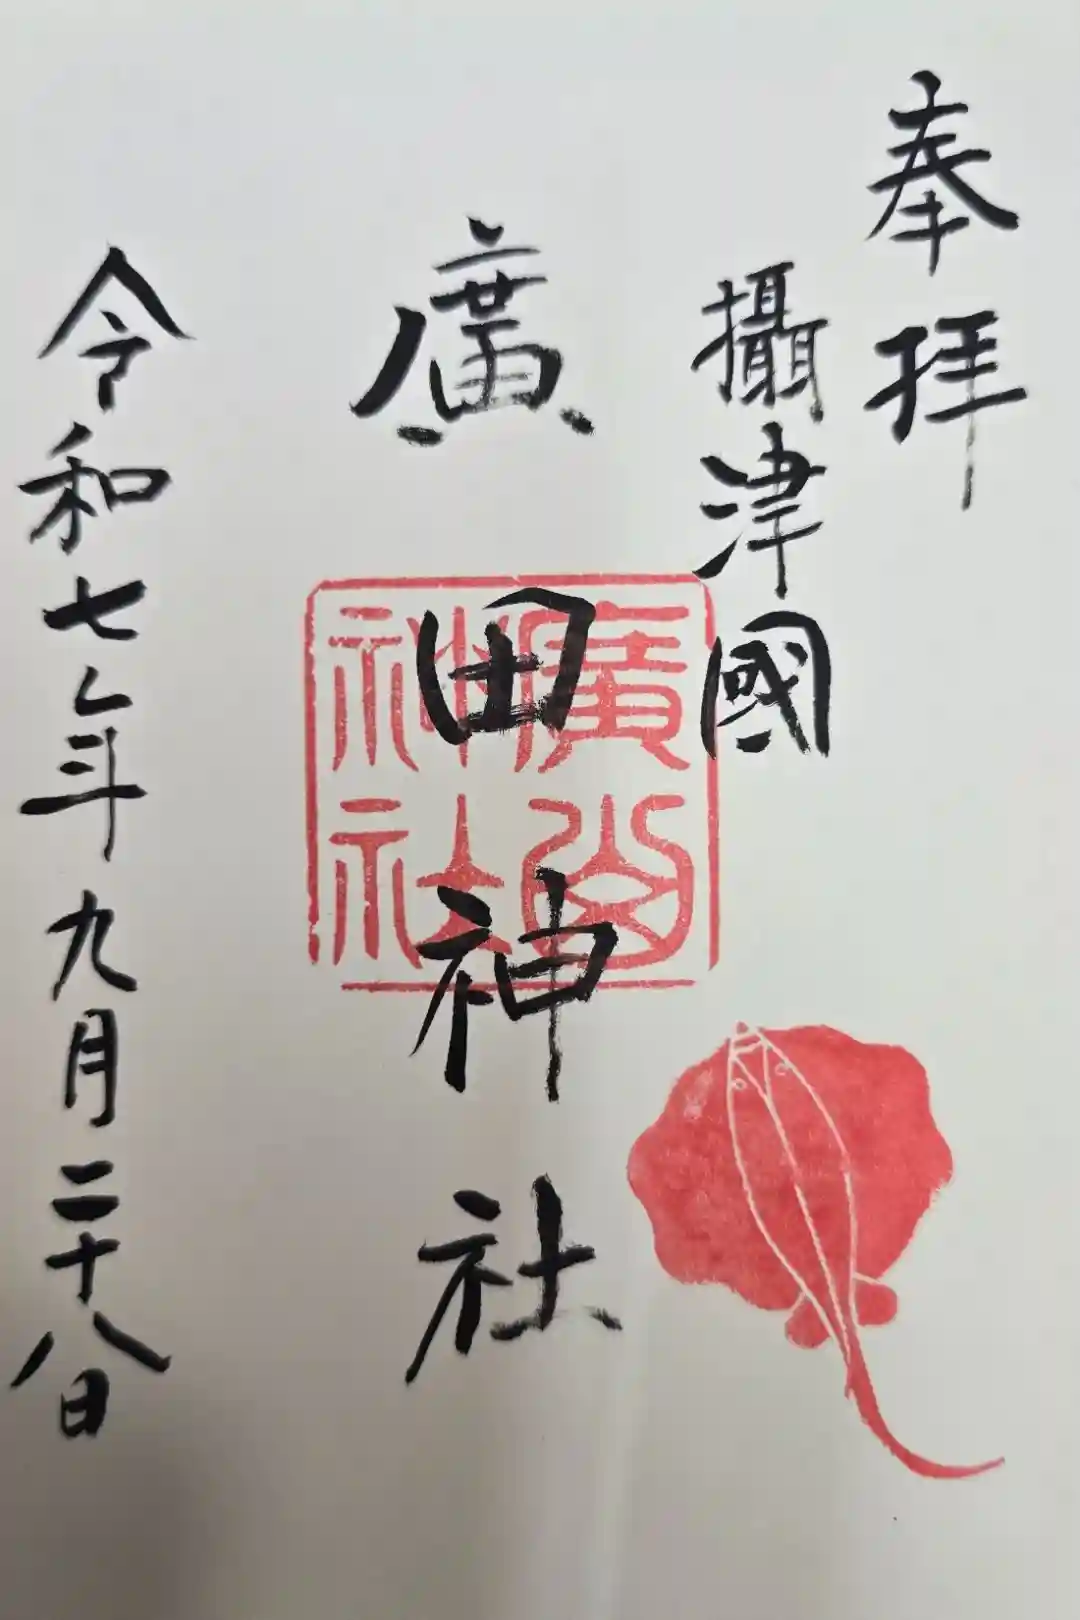 奉拝
攝津國
廣田神社
廣田神社
令和七年九月二十八日